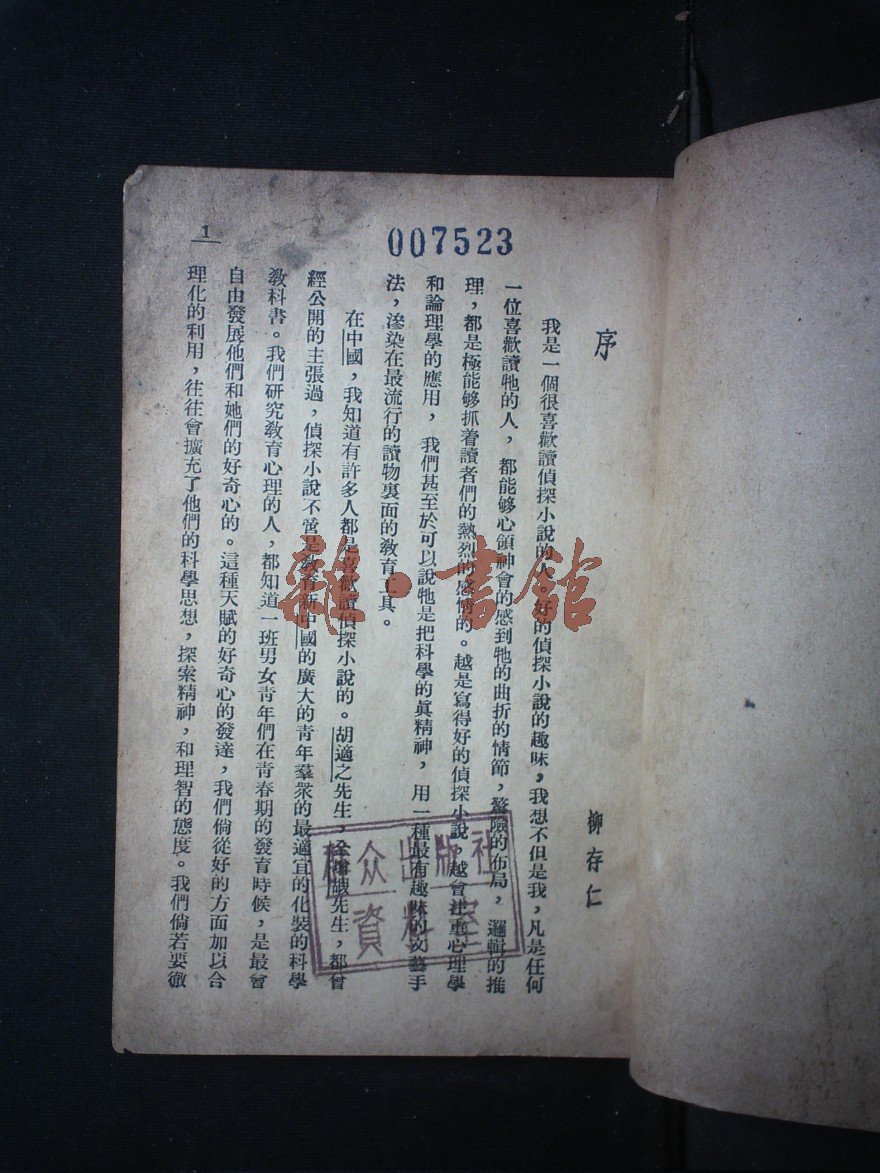 1
007523
序
柳存仁
我是一個很喜歡讀偵探小說的人,好的偵探小說的趣味,我想不但是我,凡是任何
一位喜歡讀牠的人,都能够心領神會的感到牠的曲折的情節,驚險的布局,邏輯的推
理,都是極能够抓着讀者們的熱烈的感情的。越是寫得好的偵探小說,越會注重心理學
和論理學的應用,我們甚至於可以說牠是把科學的眞精神,用一種最有趣味的文藝手
法,滲染在最流行的讀物裏面的敎育工具。
在中國,我知道有許多人都是喜歡讀偵探小說的。胡適之先生,全增嘏先生,都曾
經公開的主張過,偵探小說不啻是敎育新中國的廣大的青年羣衆的最適宜的化裝的科學
敎科書。我們研究敎育心理的人,都知道一班男女青年們在青春期的發育時候,是最會
自由發展他們和她們的好奇心的。這種天賦的好奇心的發達,我們倘從好的方面加以合
理化的利用,往往會擴充了他們的科學思想,探索精神,和理智的態度。我們倘若要徹
雜·書館
众出版社
資料室